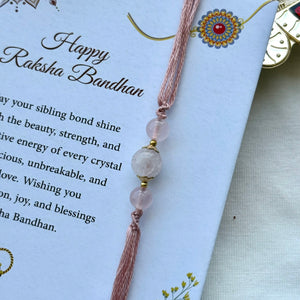 Happy
Raksha Bandhan
ay your sibling bond shine
h the beauty, strength, and
tive energy of every crystal
cious, unbreakable, and
love. Wishing you
on, joy, and blessings
sha Bandhan.